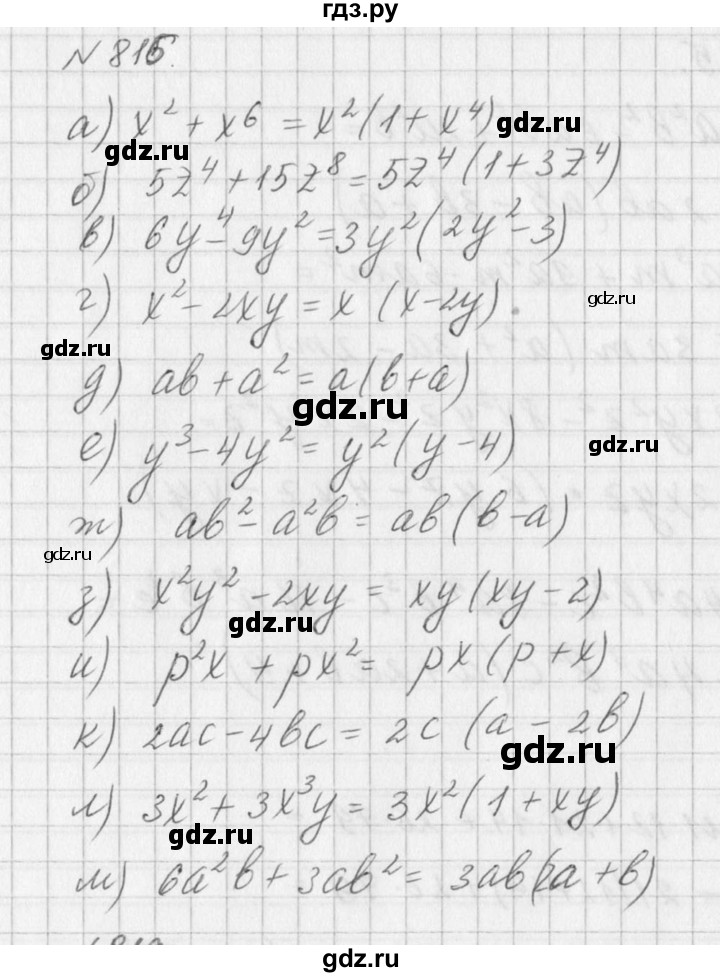 гдз.ру
№ 816.
а) x² + x⁶ = x²(1 + x⁴)
gdz.ru
gdz.ru
б) 5z⁴ + 15z⁸ = 5z⁴(1 + 3z⁴)
в) 6y⁴ - 9y² = 3y²(2y² - 3)
г) x² - 2xy = x (x - 2y).
gdz.ru
gdz.ru
д) ab + a² = a(b + a)
gdz.ru
е) y³ - 4y² = y²(y - 4)
gdz.ru
ж) ab² - a²b = ab(b - a)
gdz.ru
з) x²y² - 2xy = xy(xy - 2)
gdz.ru
и) p²x + px² = px(p + x)
к) 2ac - 4bc = 2c (a - 2b)
gdz.ru
л) 3x² + 3x³y = 3x²(1 + xy)
gdz.ru
м) 6a²b + 3ab² = 3ab(2a + b)
gdz.ru